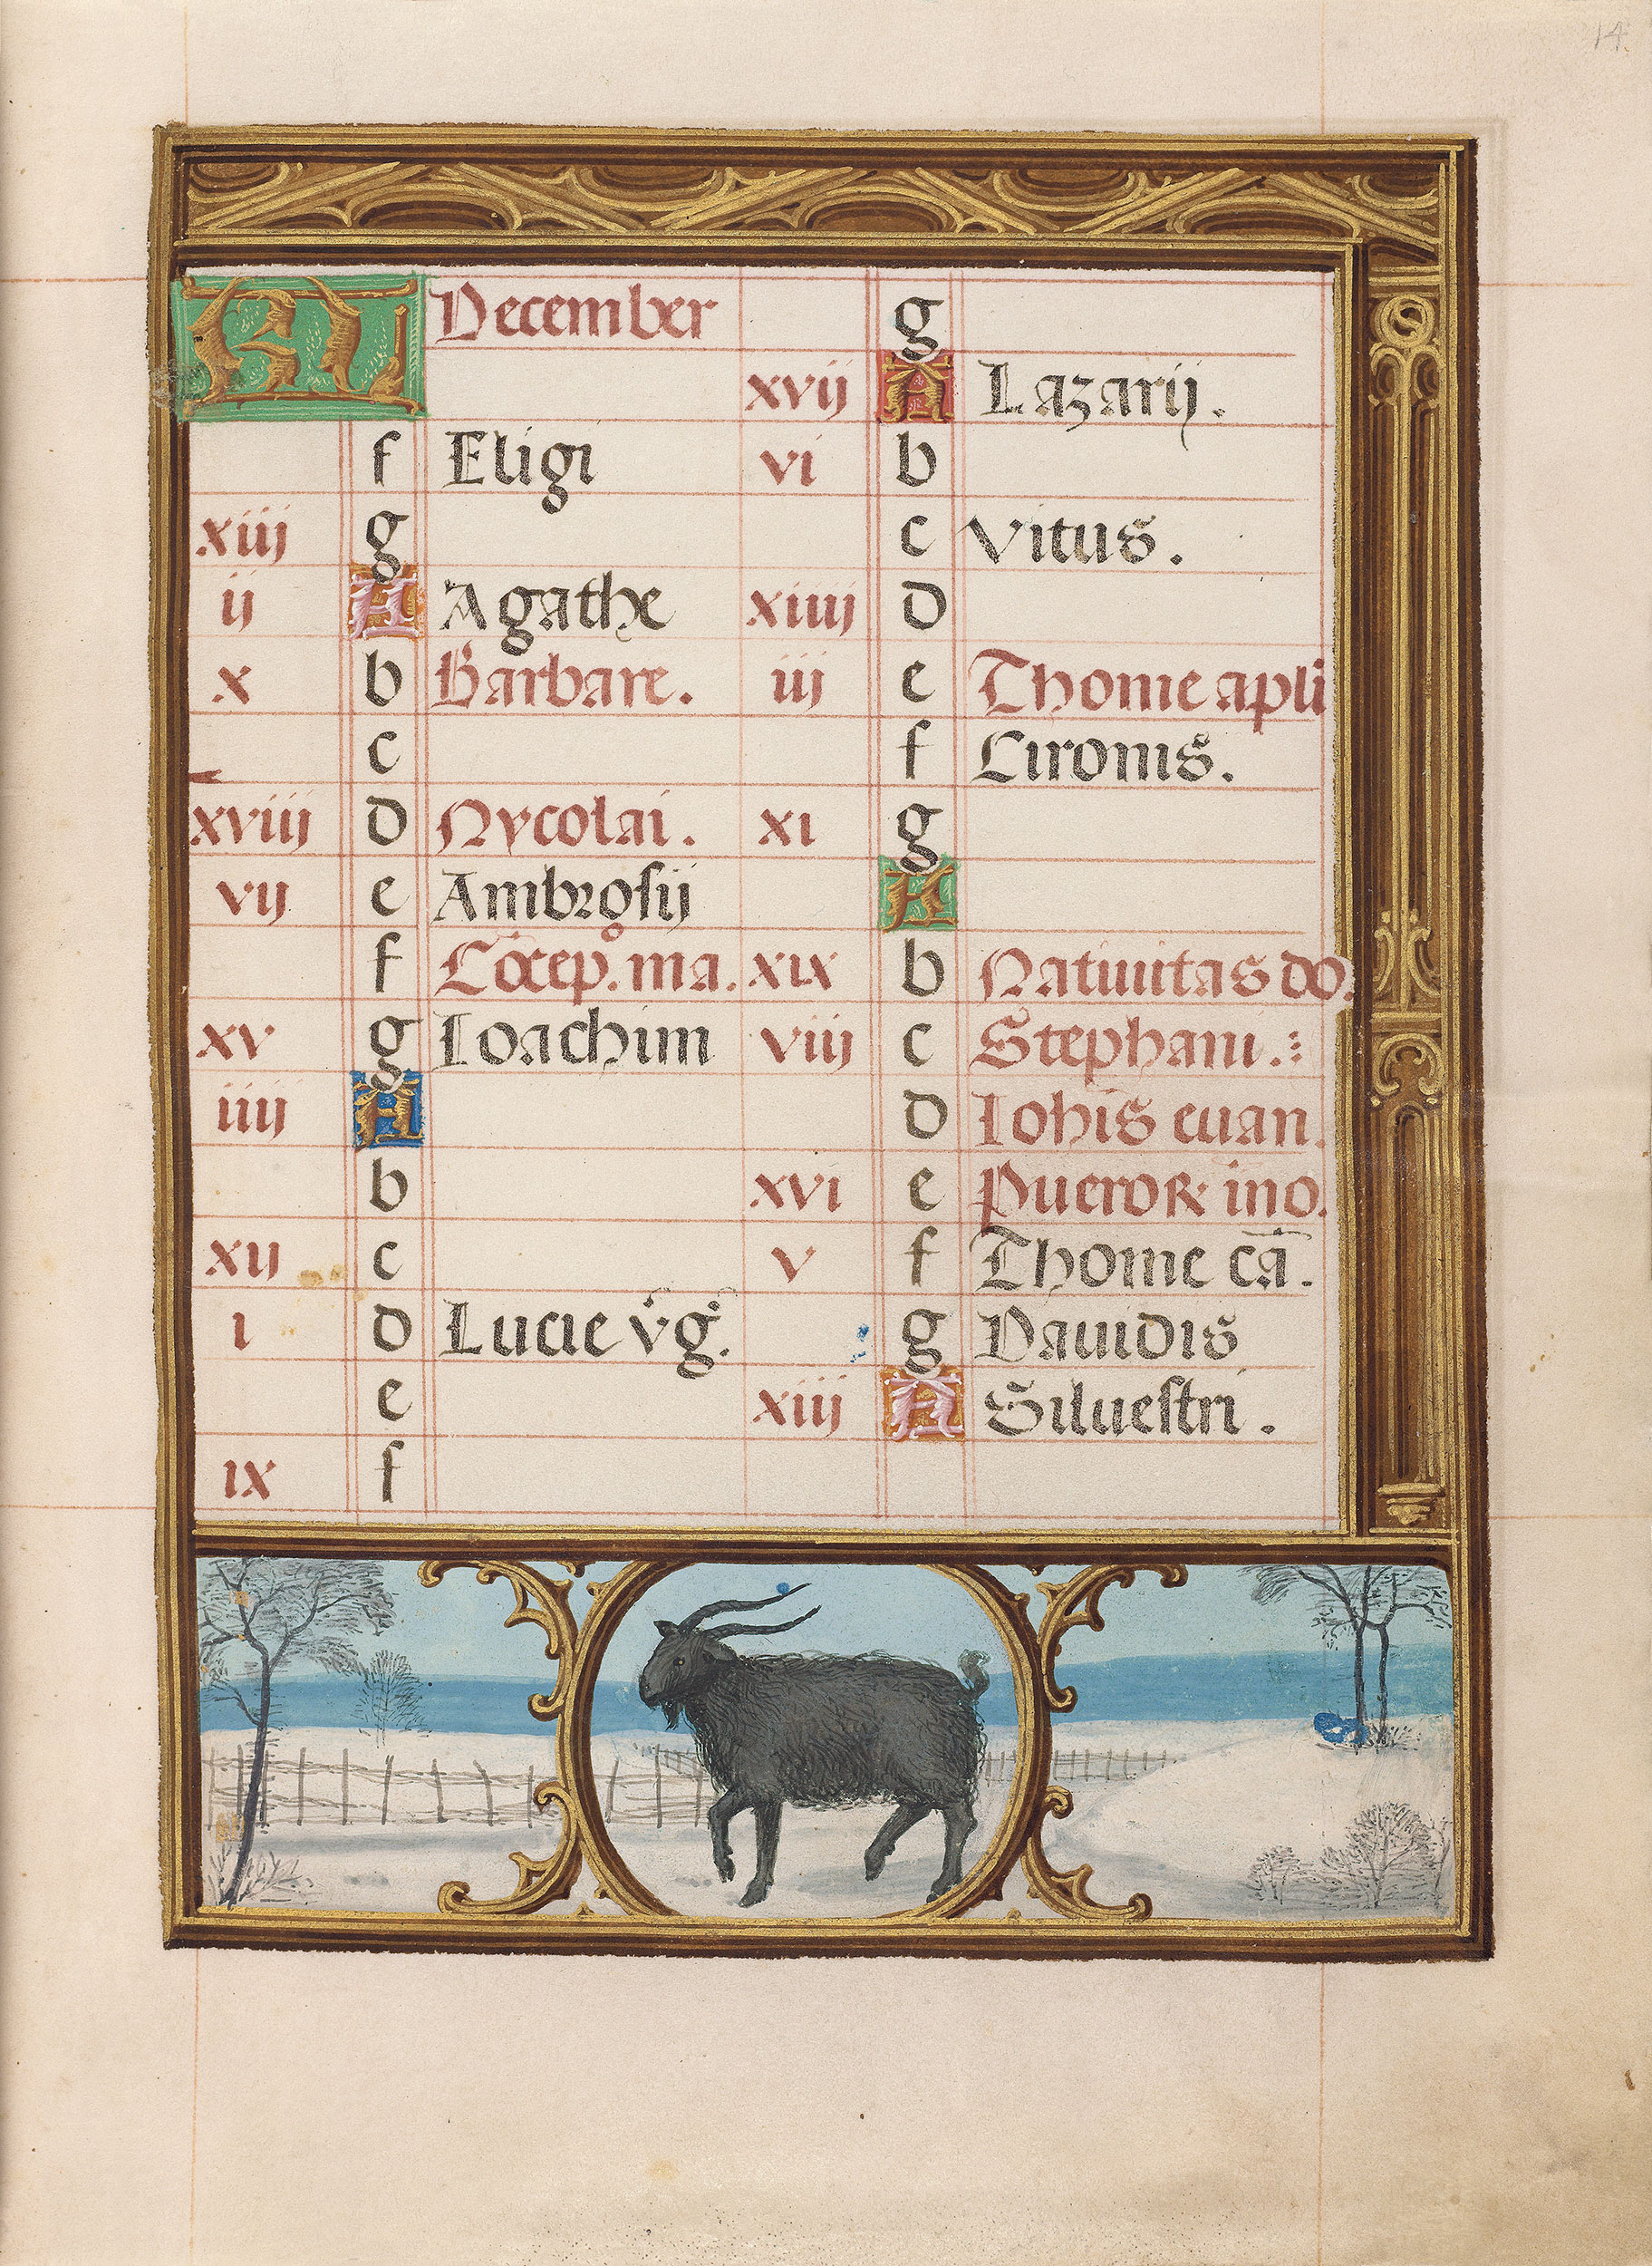 14.
KL December
f Eligi
xiij g
ij A Agathe
x b Barbare.
c
xviij d Nycolai.
vij e Ambrosij
f Cōcep. ma.
xv g Ioachim
iiij A
b
xij c
i d Lucie v̇g.
e
ix f
g
xvij A Lazarij.
vi b
c Vitus.
xiiij d
iij e Thome apli
f Cironis.
xi g
A
xix b Natiuitas do.
viij c Stephani.
d Iohis euan.
xvi e Pueroꝝ ino.
v f Thome cā.
g Dauidis
xiij A Siluestri.